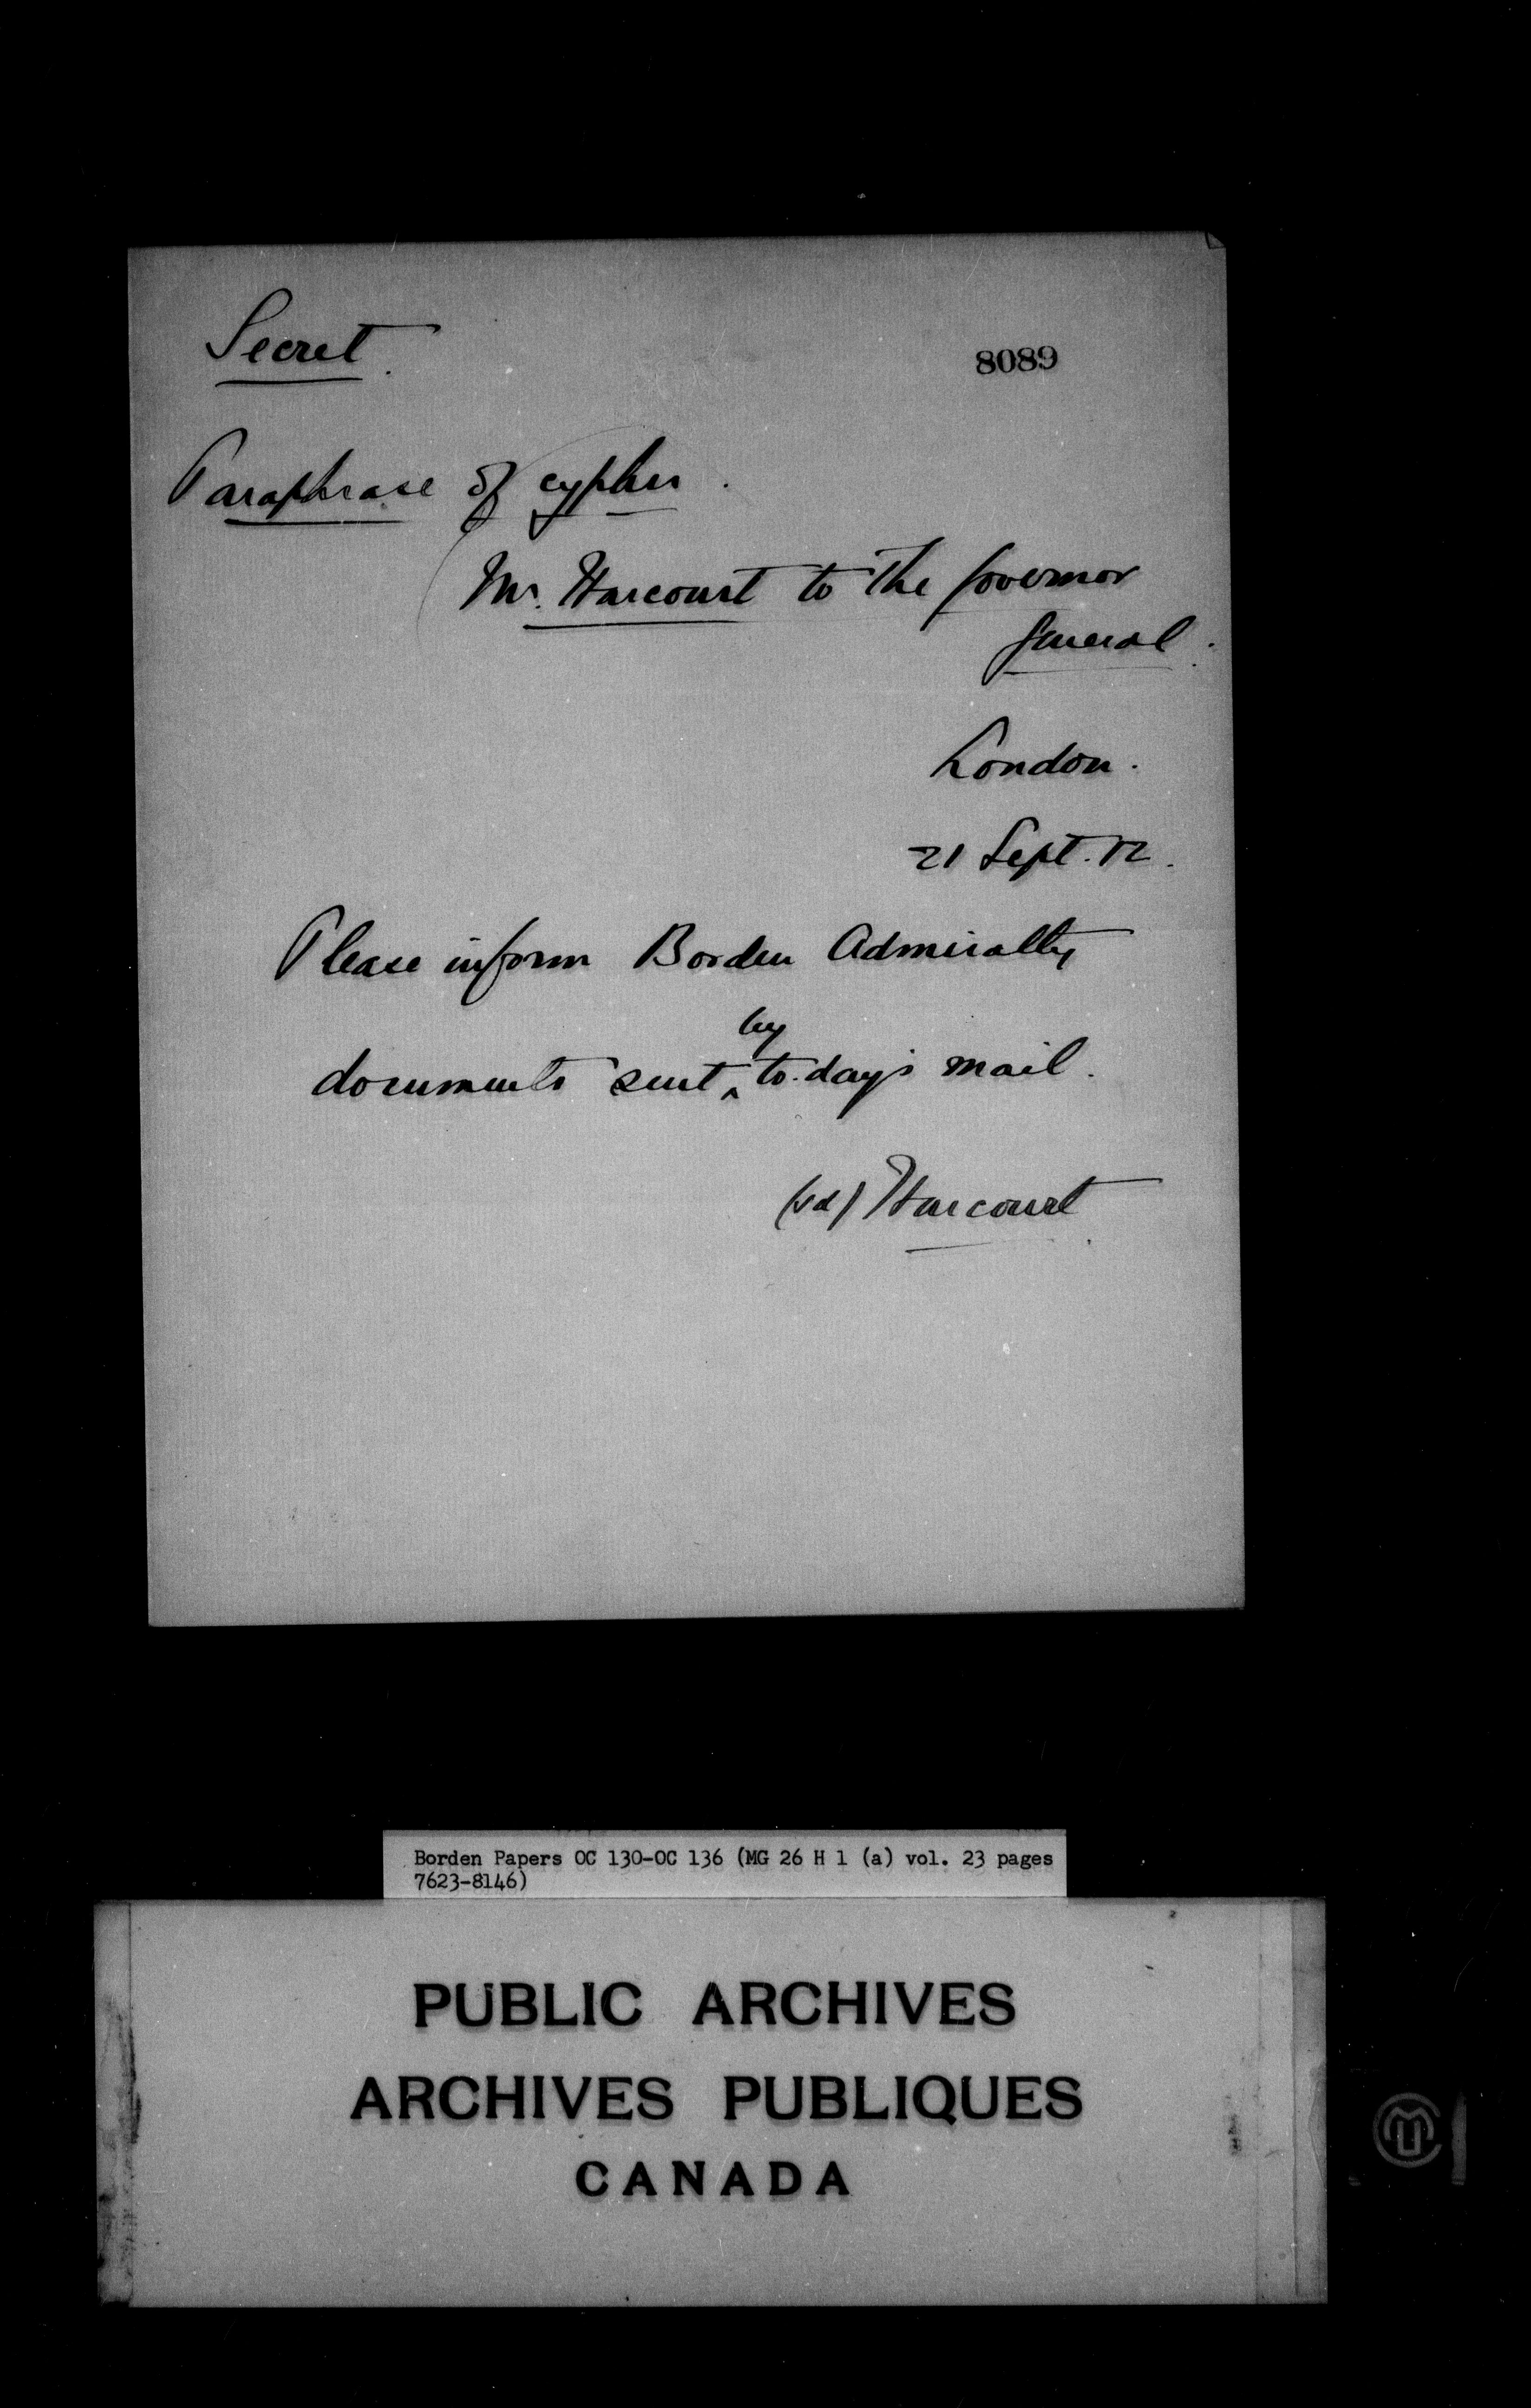 Secret.
8089
Paraphrase of cypher.
Mr. Harcourt to The Governor
General.
London.
21 Sept. 12.
Please inform Borden Admiralty
by
documents sent ^ to-day's mail.
(sd) Harcourt
Borden Papers OC 130-OC 136 (MG 26 H 1 (a) vol. 23 pages
7623-8146)
PUBLIC ARCHIVES
ARCHIVES PUBLIQUES
CANADA